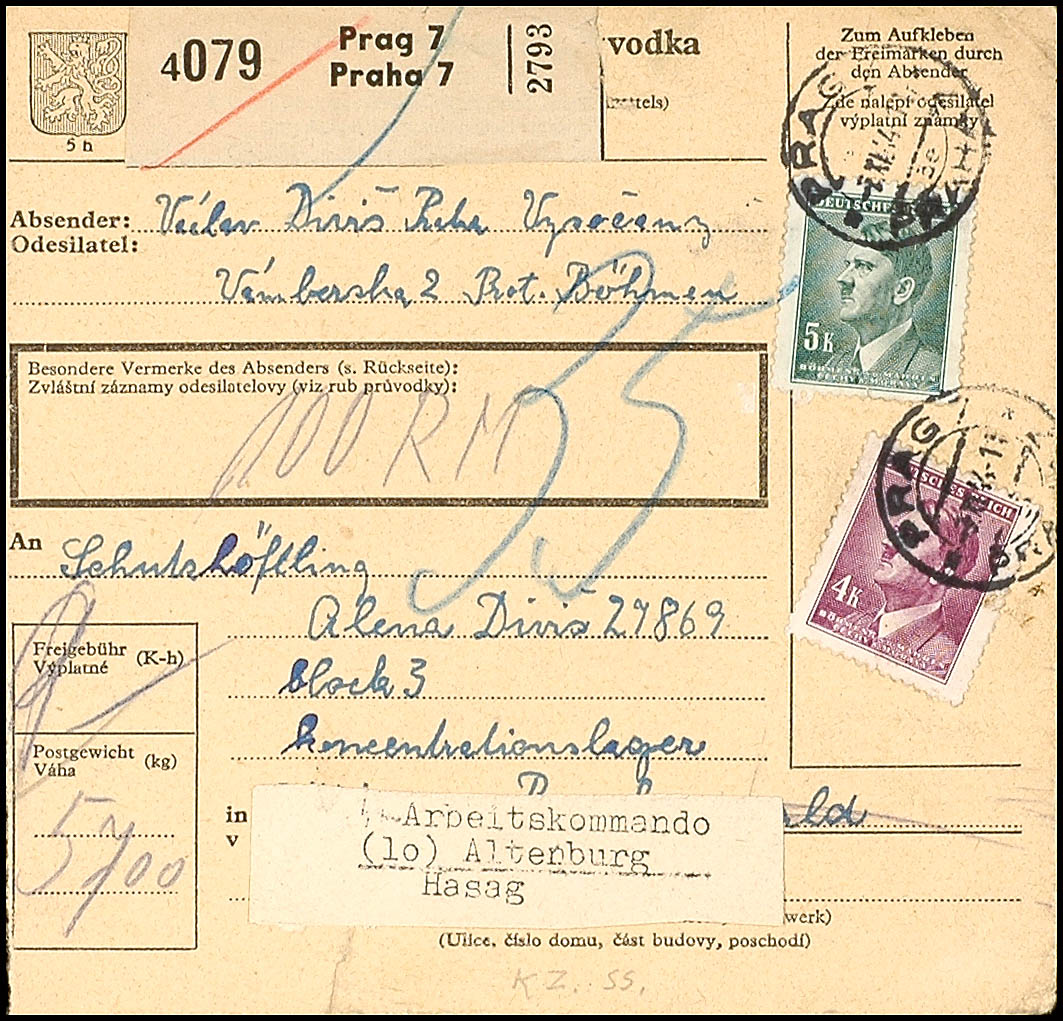 4079
Prag 7
Praha 7
2793
vodka
5 h
Zum Aufkleben
der Freimarken durch
den Absender
Zde nalepí odesilatel
výplatní známky
PRAG
Absender: Václav Diviš Praha Vysočany
Odesilatel:
Vámberska 2 Prot. Böhmen
DEUTSCHES
5K
BÖHMEN
Besondere Vermerke des Absenders (s. Rückseite):
Zvláštní záznamy odesilatelovy (viz rub průvodky):
100 RM
35
PRAG
DEUTSCHES REICH
4K
An
Schutzhöftling
Alena Diviš 27869
block 3
koncentrationslager
Freigebühr
Výplatné
(K-h)
Postgewicht
Váha
(kg)
in
v
ald
Arbeitskommando
(lo) Altenburg
Hasag
werk)
(Ulice, číslo domu, část budovy, poschodí)
K Z. SS.